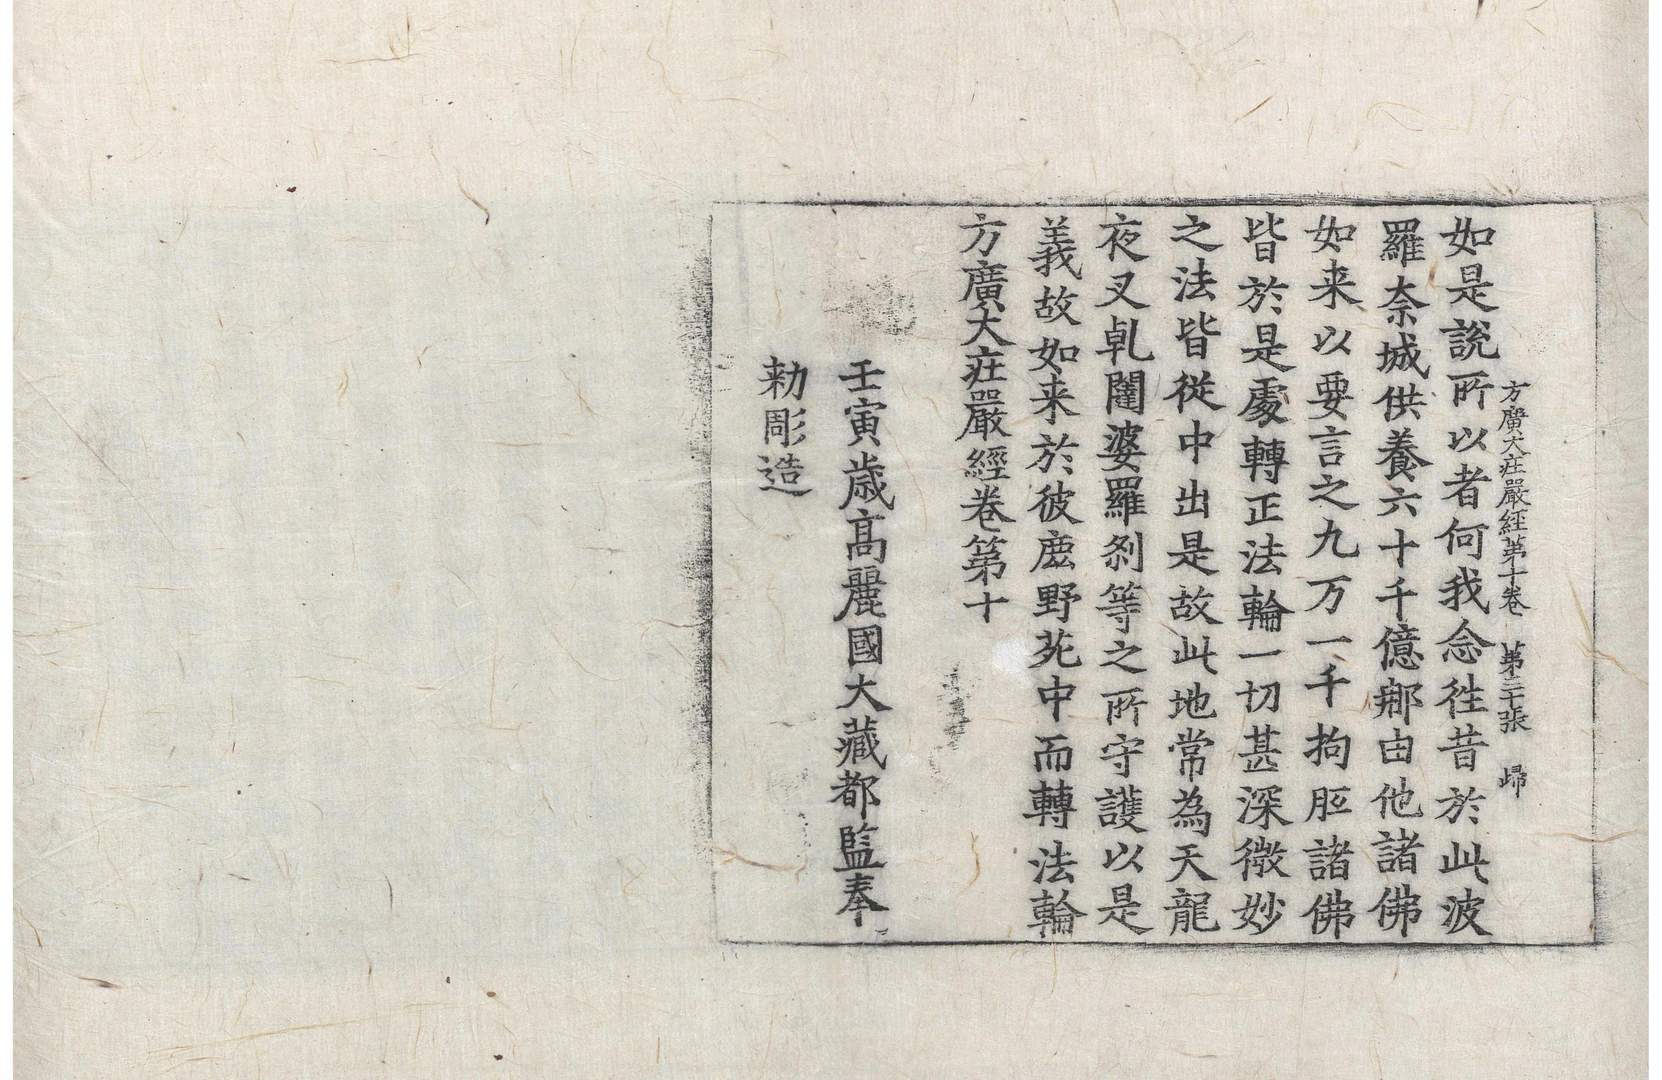 方廣大莊嚴經第十卷 第三十張 歸
如是說所以者何我念徃昔於此波
羅奈城供養六十千億那由他諸佛
如来以要言之九万一千拘胝諸佛
皆於是處轉正法輪一切甚深微妙
之法皆從中出是故此地常為天龍
夜叉乹闥婆羅剎等之所守護以是
義故如来於彼鹿野苑中而轉法輪
方廣大莊嚴經卷第十
壬寅歲高麗國大藏都監奉
勅彫造